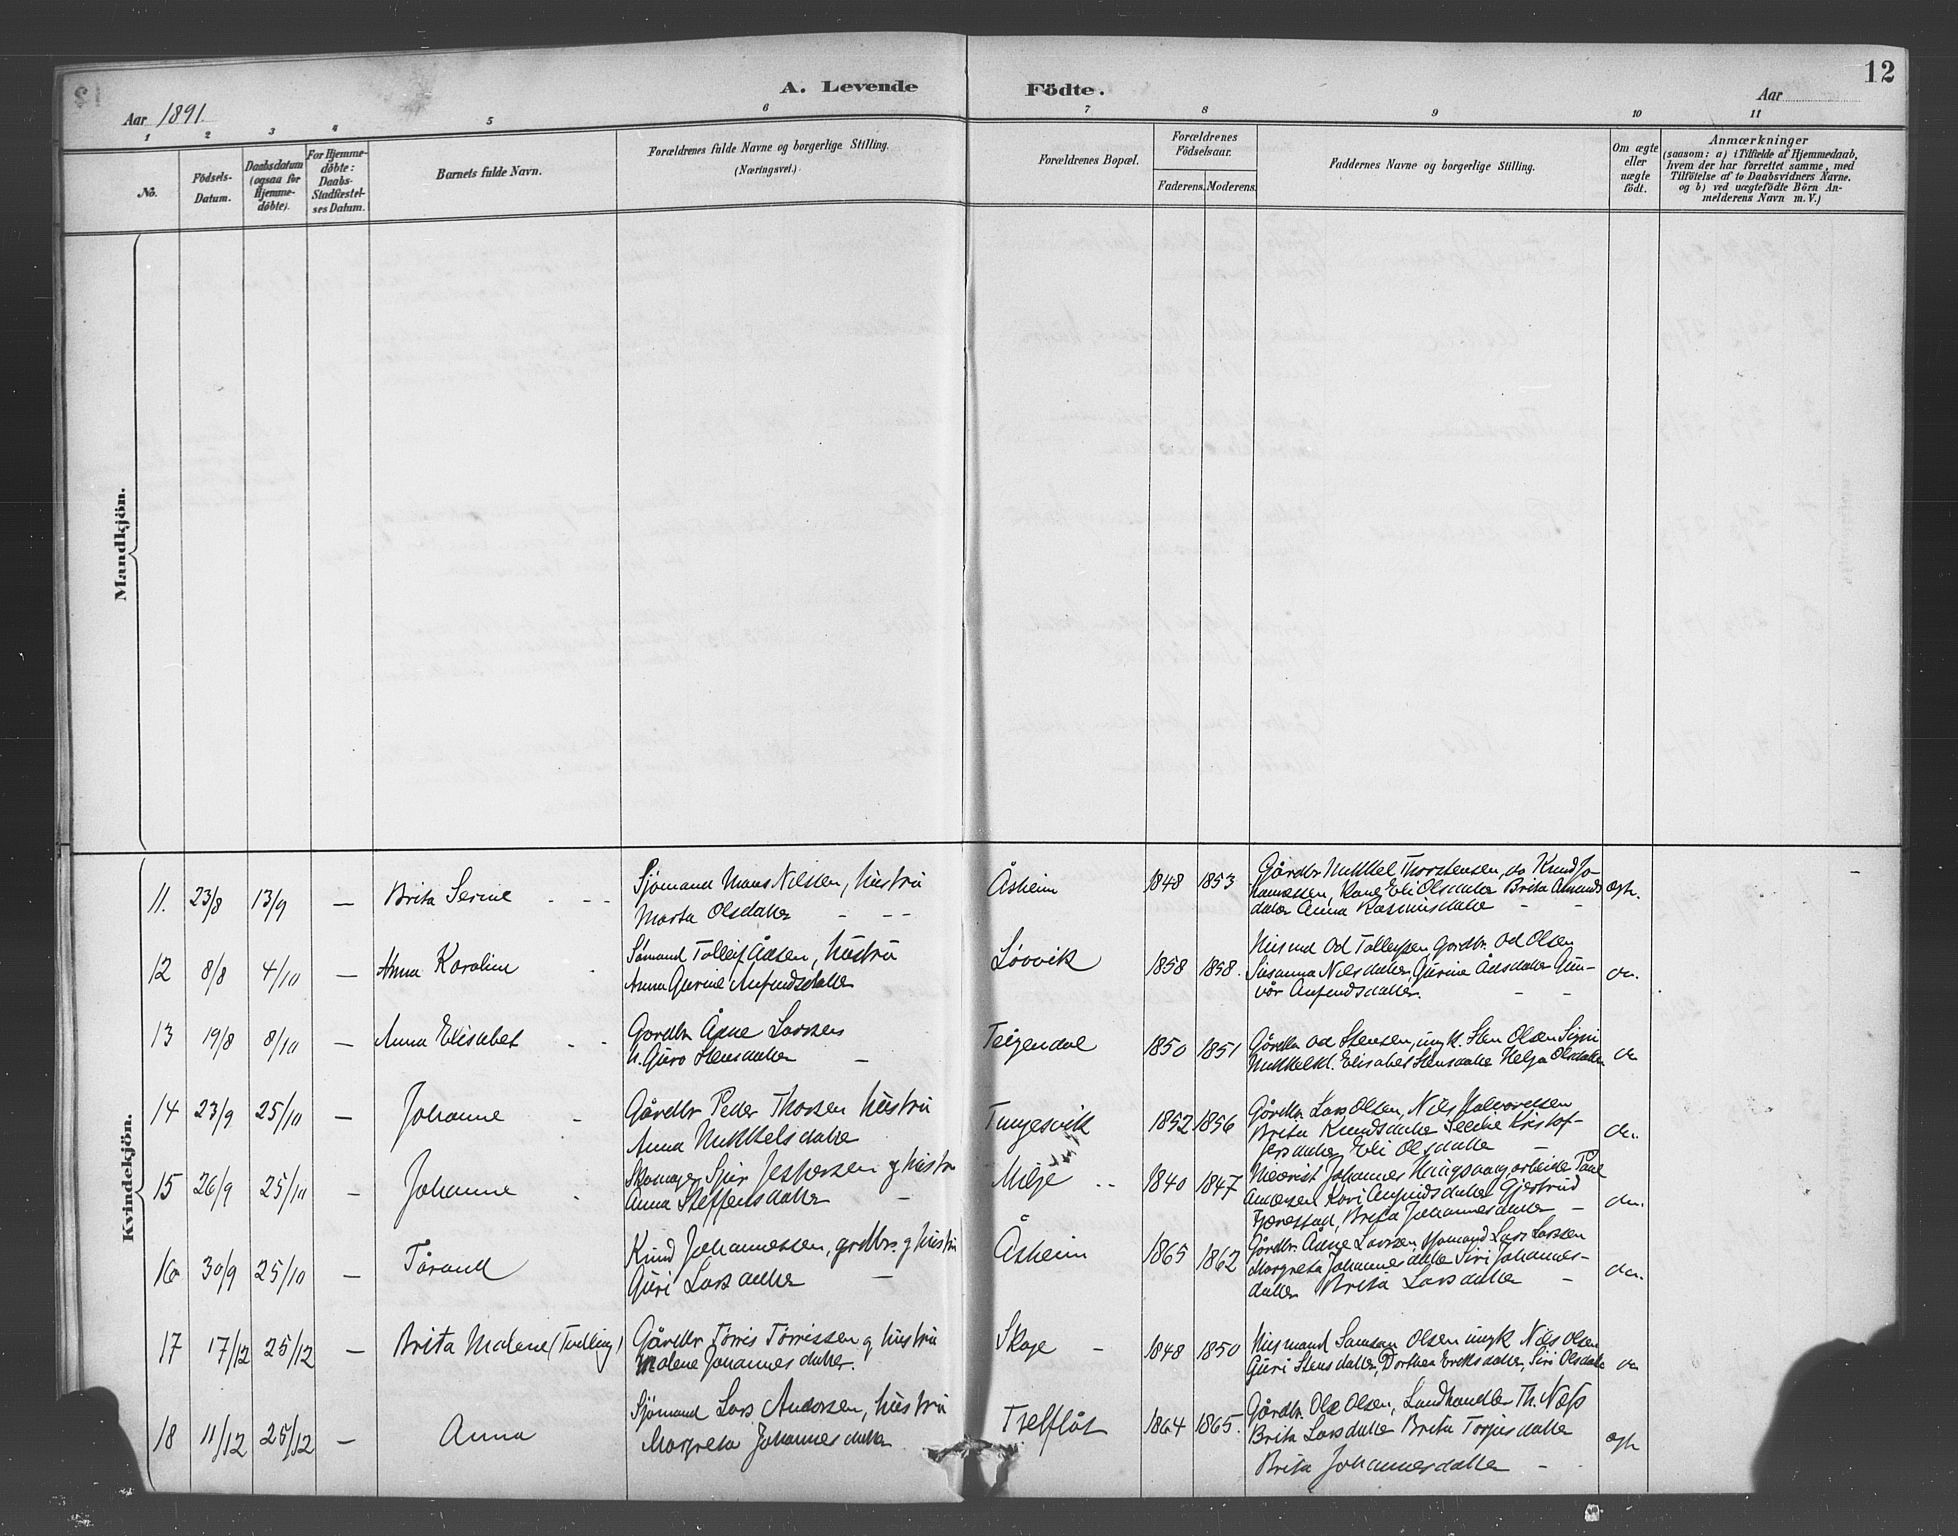 12
A. Levende Födte.
Aar 1891.
Aar
1 2 3 4 5 6 7 8 9 10 11
No.
Födsels-Datum.
Daabsdatum (ogsaa for Hjemmedöbte).
For Hjemmedöbte: Daabs-Stadfæstelses Datum.
Barnets fulde Navn.
Forældrenes fulde Navne og borgerlige Stilling. (Næringsvei.)
Forældrenes Bopæl.
Forældrenes Födselsaar.
Faderens. Moderens.
Faddernes Navne og borgerlige Stilling.
Om ægte eller uægte födt.
Anmærkninger
(saasom: a) i Tilfælde af Hjemmedaab,
hvem der har forrettet samme, med
Tilföielse af to Daabsvidners Navne.
og b) ved uægtefödte Börn An-
melderens Navn m. V.)
Mandkjön.
Kvindekjön.
11. 23/8 13/9 — Brita Serine - - -
Sjømand Mons Nilssen, hustru
Marta Olsdatter - - -
Åsheim 1848 1853
Gårdbr Mikkel Thorstensen, do Knud Jo-
hannessen, Kone Eli Olsdatter Brita Amunds
datter Anna Rasmusdatter - -
ægte.
12 8/8 4/10 — Anna Karoline -
Sømand Tolleif Ådsen, hustru
Anna Gurine Anfindsdatter
Løvvik 1858 1858.
Husmd Od Tolleifsen Gardbr. Od Olsen
Susanna Nilsdatter, Gurine Ådsdatter Gun-
vör Anfindsdatter. - -
do.
13 19/8 8/10 — Anna Elisabet - -
Gardbr Ådne Larsen
h. Guro Stensdatter -
Teigendal 1850 1851
Gårdbr Od Stensen, ungk. Sten Olsen Signi
Mikkelsd. Elisabet Stensdatter Helga Olsdatter
do
14 23/9 25/10 — Johanne -
Gårdbr Peder Thorsen hustru
Anna Mikkelsdatter
Tungesvik 1852 1856
Gårdbr. Lars Olsen, Nils Halvorsen
Brita Knudsdatter Secilie Kristof-
fersdatter Eli Olsdatter -
do.
15 26/9 25/10 — Johanne -
Skomager Sjur Jespersen og hustru
Anna Steffensdatter -
Milje - - 1840 1847
Johannes Haugsvang, arbeider Paul
Andersen Kari Anfindsdatter Gjertrud
Fjærestad, Brita Johannesdatter -
do.
16 30/9 25/10 — Tårand
Knud Johannessen, grdbr. og hustru
Guri Larsdatter -
Åsheim 1865 1862
Gårdbr. Ådne Larsen, sjømand Lars Larsen
Margreta Johannesdatter Siri Johannes-
datter Brita Larsdatter -
do.
17 17/12 25/12 — Brita Malene (Tvilling)
Gårdbr Tørris Tørrissen og hustru
Malene Johannesdatter.
Skage - 1848 1850
Husmand Samson Olsen ungk Nils Olsen
Guri Stensdatter, Dorthea Eriksdatter, Siri Olsdatter
do
18 11/12 25/12 — Anna
Sjømand Lars Andersen, hustru
Margreta Johannesdatter
Trelflåt 1864 1865.
Gårdbr. Ole Olsen, Landhandler Th. Næss
Brita Larsdatter Brita Torjusdatter
Brita Johannesdatter -
ægte